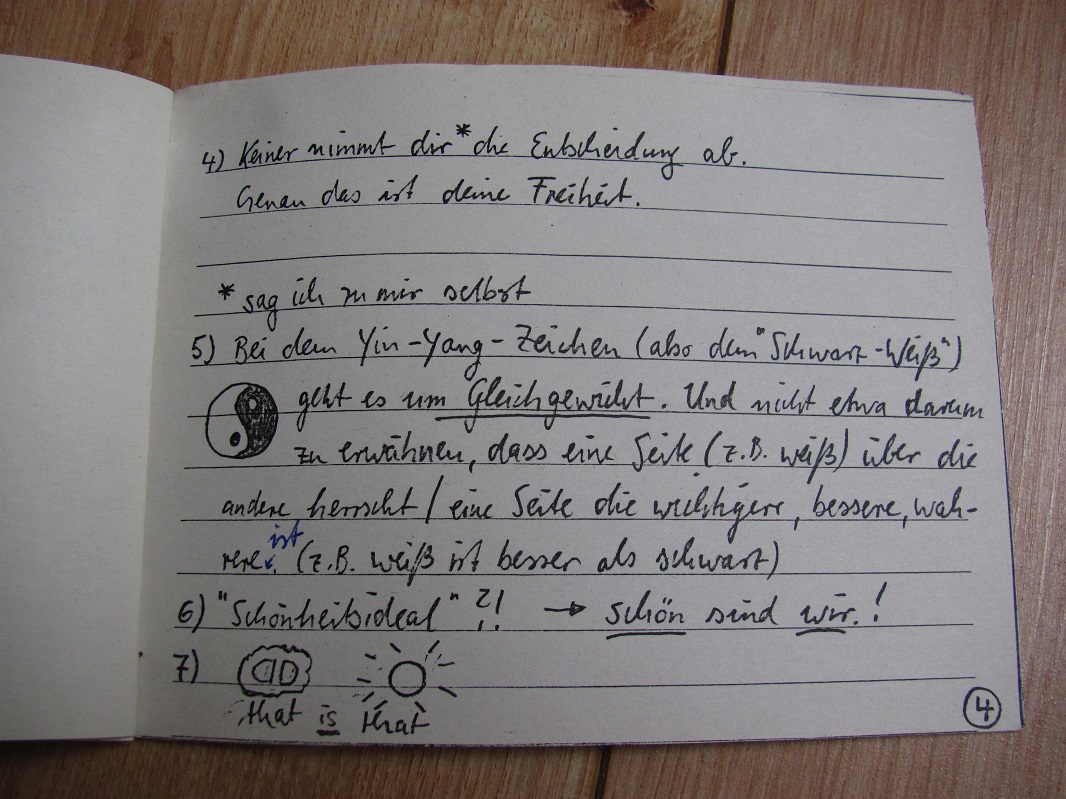 4) Keiner nimmt dir * die Entscheidung ab.
Genau das ist deine Freiheit.
* sag ich zu mir selbst
5) Bei dem Yin-Yang-Zeichen (also dem "Schwarz-Weiß")
geht es um Gleichgewicht. Und nicht etwa darum
zu erwähnen, dass eine Seite (z.B. weiß) über die
andere herrscht / eine Seite die wichtigere, bessere, wah-
rere ist. (z.B. weiß ist besser als schwarz)
6) "Schönheitsideal" ?! → schön sind wir!
7)
that is that
4